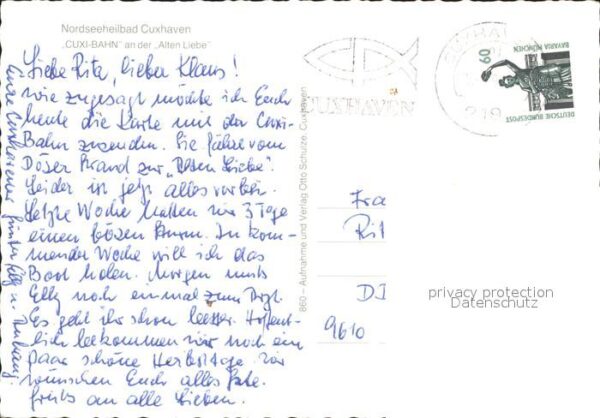 Nordseeheilbad Cuxhaven
„CUXI-BAHN“ an der „Alten Liebe“
Liebe Rita, lieber Klaus!
wie zugesagt möchte ich Euch
heute die Karte mit der Cuxi-
Bahn zusenden. Sie fährt vom
Döser Strand zur „Alten Liebe“.
Leider ist jetzt alles vorbei.
Letzte Woche hatten wir 3 Tage
einen bösen Sturm. In kom-
mender Woche will ich das
Boot holen. Morgen muß
Elly noch einmal zum Arzt.
Es geht ihr schon besser. Hoffent-
lich bekommen wir noch ein
paar schöne Herbsttage. Wir
wünschen Euch alles Gute.
Grüße an alle Lieben.
Eure Cuxhavener Günter Elly u. Anhang!
860 – Aufnahme und Verlag Otto Schulze, Cuxhaven
CUXHAVEN
219
60
BAVARIA MÜNCHEN
DEUTSCHE BUNDESPOST
Fra
Rit
DI
9610
privacy protection
Datenschutz